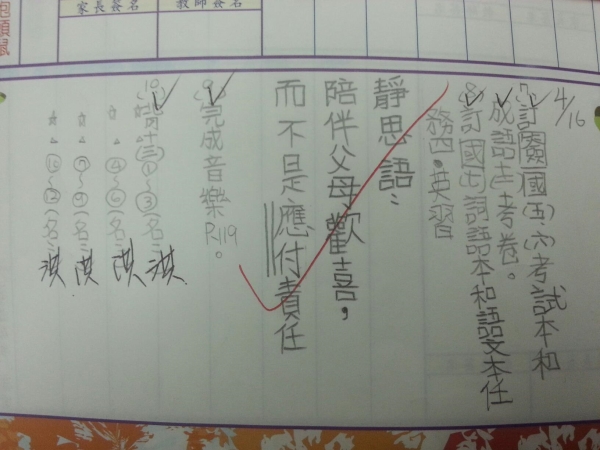 家長簽名
教師簽名
4/16
(7)訂關國(五)、(六)考試本和
成語(七)考卷。
(8)訂國(七)詞語本和語文本任
務四。英習
靜思語:
陪伴父母歡喜,
而不是應付責任
(9)完成音樂P.119。
①~③(名):
☆△④~⑥(名):
☆△⑦~⑨(名):
☆△⑩~⑫(名):